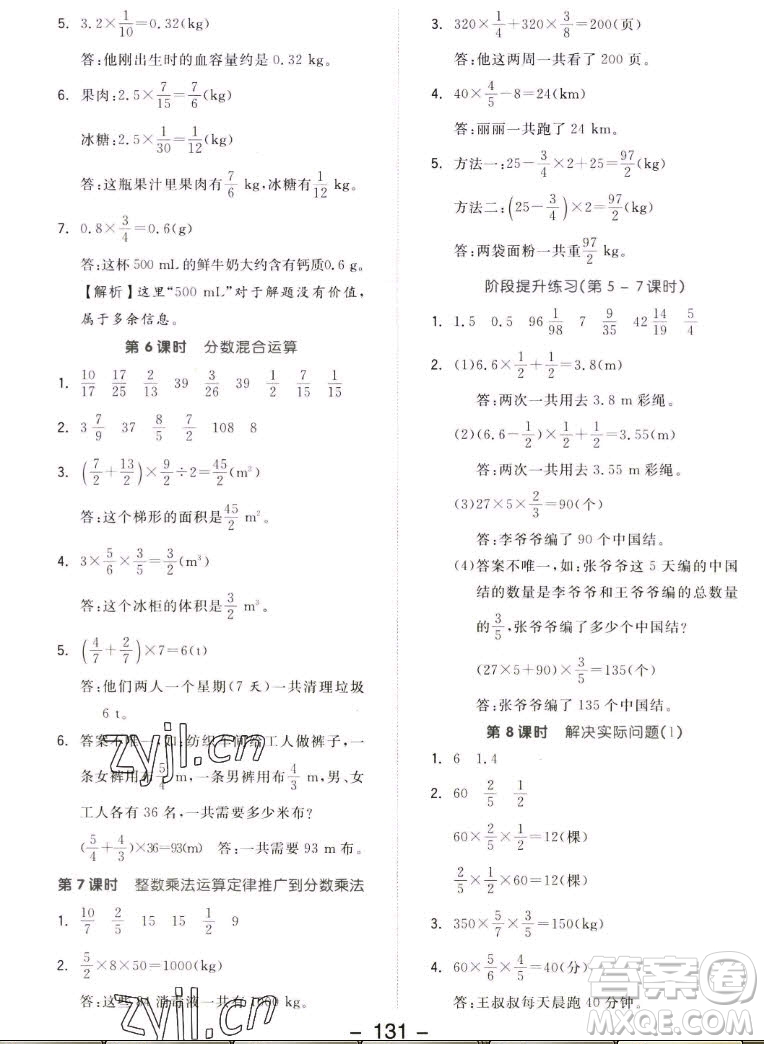 5. 3.2×1/10=0.32(kg)
答:他刚出生时的血容量约是 0.32 kg。
6. 果肉:2.5×7/15=7/6(kg)
冰糖:2.5×1/30=1/12(kg)
答:这瓶果汁里果肉有7/6 kg,冰糖有1/12 kg。
7. 0.8×3/4=0.6(g)
答:这杯 500 mL 的鲜牛奶大约含有钙质0.6 g。
【解析】这里“500 mL”对于解题没有价值,
属于多余信息。
第 6 课时 分数混合运算
1. 10/17 17/25 2/13 39 3/26 39 1/2 7/15
2. 3 7/9 37 8/5 7/2 108 8
3. (7/2+13/2)×9/2÷2=45/2(m²)
答:这个梯形的面积是45/2 m²。
4. 3×5/6×3/5=3/2(m³)
答:这个冰柜的体积是3/2 m³。
5. (4/7+2/7)×7=6(t)
答:他们两人一个星期(7 天)一共清理垃圾
6 t。
6. 答案不唯一,如:纺织车间给工人做裤子,一
条女裤用布5/4 m,一条男裤用布4/3 m,男、女
工人各有 36 名,一共需要多少米布?
(5/4+4/3)×36=93(m) 答:一共需要 93 m 布。
第 7 课时 整数乘法运算定律推广到分数乘法
1. 10/7 2/5 15 15 1/2 9
2. 5/2×8×50=1000(kg)
答:这 油 液一共有1000 kg。
3. 320×1/4+320×3/8=200(页)
答:他这两周一共看了 200 页。
4. 40×4/5-8=24(km)
答:丽丽一共跑了 24 km。
5. 方法一:25-3/4×2+25=97/2(kg)
方法二:(25-3/4)×2=97/2(kg)
答:两袋面粉一共重97/2 kg。
阶段提升练习(第 5-7 课时)
1. 1.5 0.5 96 1/98 7 9/35 42 14/19 5/4
2. (1)6.6×1/2+1/2=3.8(m)
答:两次一共用去 3.8 m 彩绳。
(2)(6.6-1/2)×1/2+1/2=3.55(m)
答:两次一共用去 3.55 m 彩绳。
(3)27×5×2/3=90(个)
答:李爷爷编了 90 个中国结。
(4)答案不唯一,如:张爷爷这 5 天编的中国
结的数量是李爷爷和王爷爷编的总数量
的3/5,张爷爷编了多少个中国结?
(27×5+90)×3/5=135(个)
答:张爷爷编了 135 个中国结。
第 8 课时 解决实际问题(1)
1. 6 1.4
2. 60 2/5 1/2
60×2/5×1/2=12(棵)
2/5×1/2×60=12(棵)
3. 350×5/7×3/5=150(kg)
4. 60×5/6×4/5=40(分)
答:王叔叔每天晨跑 40 分钟。
- 131 -
zyjl.cn
zyjl.cn
答案圈